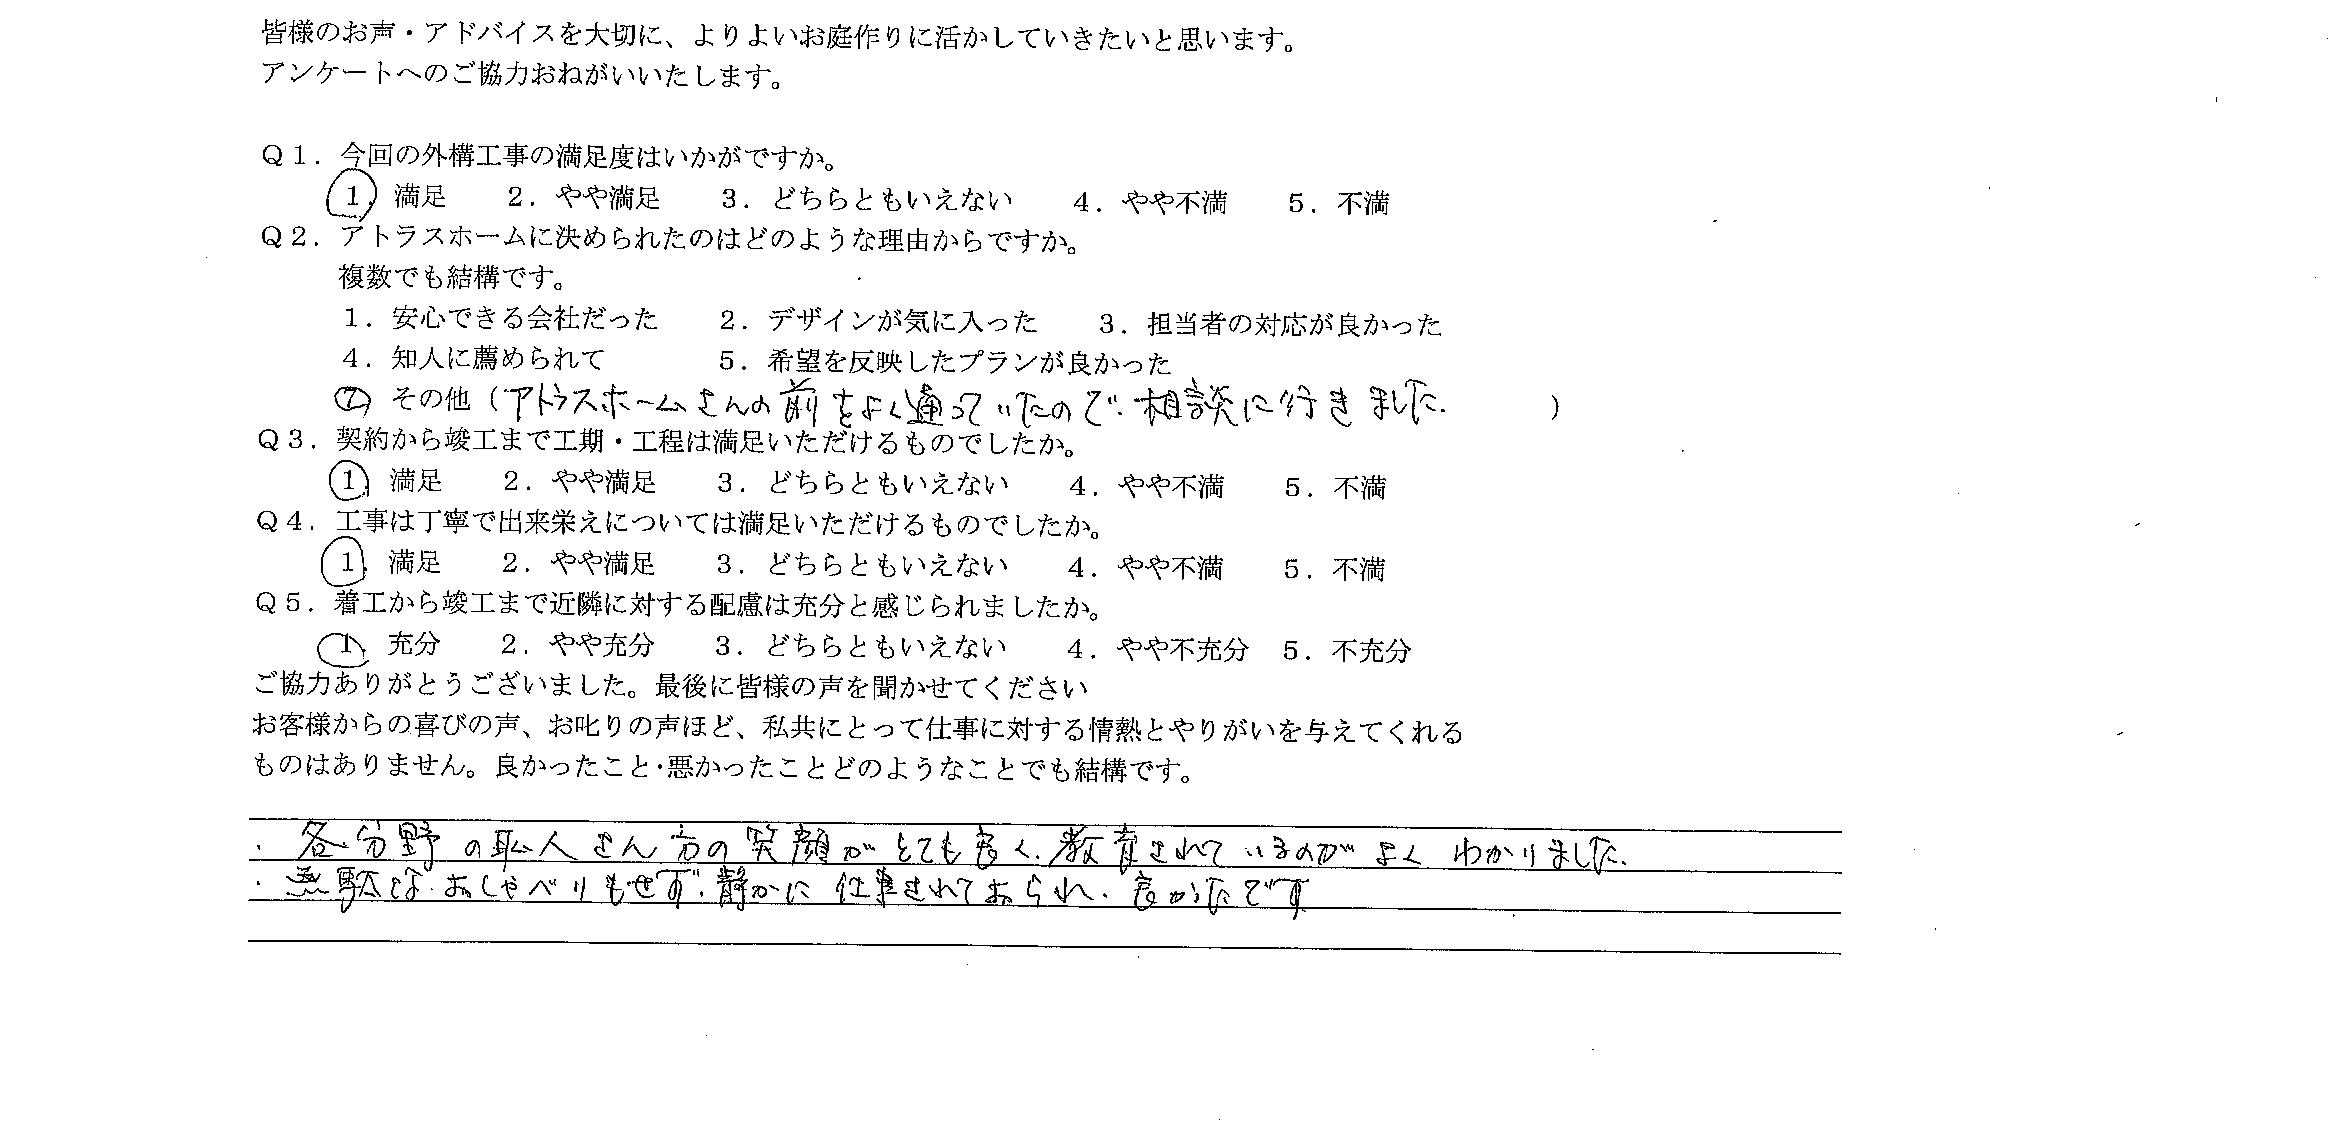 皆様のお声・アドバイスを大切に、よりよいお庭作りに活かしていきたいと思います。
アンケートへのご協力おねがいいたします。
Q1．今回の外構工事の満足度はいかがですか。
1．満足　2．やや満足　3．どちらともいえない　4．やや不満　5．不満
Q2．アトラスホームに決められたのはどのような理由からですか。
複数でも結構です。
1．安心できる会社だった　2．デザインが気に入った　3．担当者の対応が良かった
4．知人に薦められて　5．希望を反映したプランが良かった
⑦ その他（アトラスホームさんの前をよく通っていたので、相談に行きました.）
Q3．契約から竣工まで工期・工程は満足いただけるものでしたか。
1．満足　2．やや満足　3．どちらともいえない　4．やや不満　5．不満
Q4．工事は丁寧で出来栄えについては満足いただけるものでしたか。
1．満足　2．やや満足　3．どちらともいえない　4．やや不満　5．不満
Q5．着工から竣工まで近隣に対する配慮は充分と感じられましたか。
1．充分　2．やや充分　3．どちらともいえない　4．やや不充分　5．不充分
ご協力ありがとうございました。最後に皆様の声を聞かせてください
お客様からの喜びの声、お叱りの声ほど、私共にとって仕事に対する情熱とやりがいを与えてくれる
ものはありません。良かったこと･悪かったことどのようなことでも結構です。
・各分野の職人さん方の笑顔がとても良く、教育されているのがよくわかりました.
・無駄なおしゃべりもせず、静かに仕事されておられ、良かったです